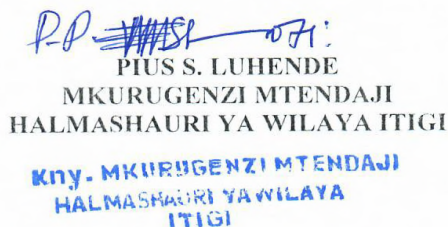 P.P.
PIUS S. LUHENDE
MKURUGENZI MTENDAJI
HALMASHAURI YA WILAYA ITIGI
Kny. MKURUGENZI MTENDAJI
HALMASHAURI YA WILAYA
ITIGI